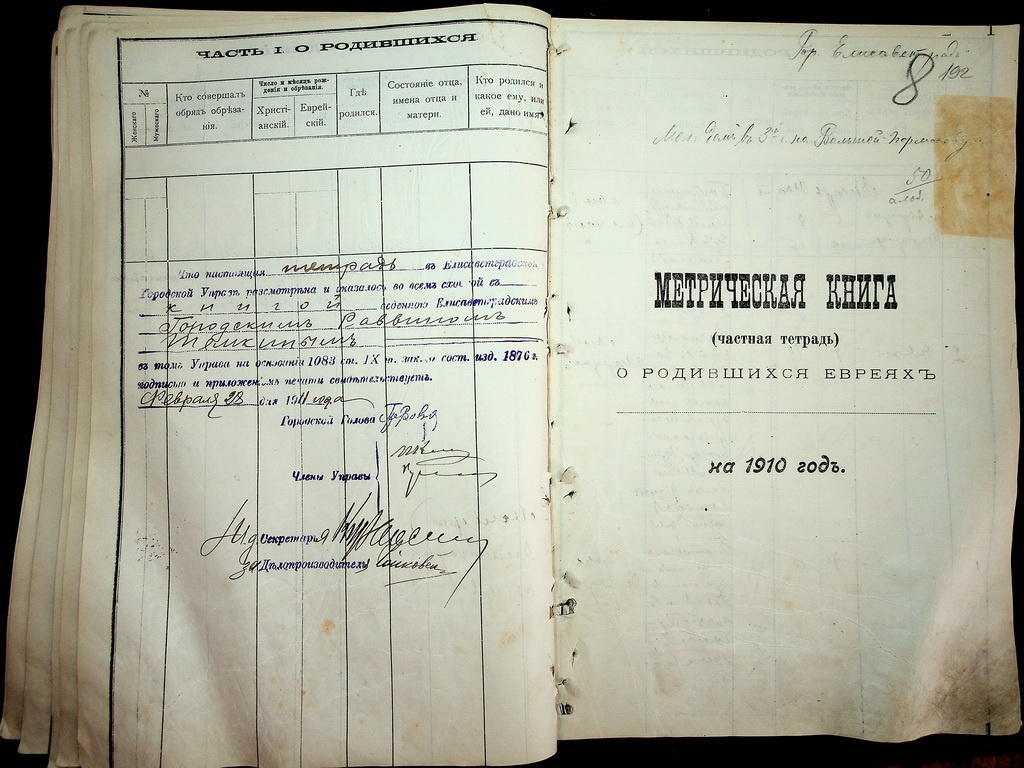 ЧАСТЬ I. О РОДИВШИХСЯ
№
Женскаго
Мужескаго
Кто совершалъ обрядъ обрѣзанія.
Число и мѣсяцъ рожденія и обрѣзанія.
Христіанскій.
Еврейскій.
Гдѣ родился.
Состояніе отца, имена отца и матери.
Кто родился и какое ему, или ей, дано имя.
Что настоящая тетрадь въ Елисаветградской
Городской Управѣ разсмотрѣна и оказалось во всемъ сходной съ
книгой веденною Елисаветградскимъ
Городскимъ Раввиномъ
въ томъ Управа на основаніи 1083 ст. IX т. зак. о сост. изд. 1876 г.
подписью и приложеніемъ печати свидѣтельствуетъ.
Февраля 28 дня 1911 года
Городской Голова
Члены Управы
И. д. Секретаря
За Дѣлопроизводитель
Гор. Елисаветградъ
8
192
50
МЕТРИЧЕСКАЯ КНИГА
(частная тетрадь)
О РОДИВШИХСЯ ЕВРЕЯХЪ
на 1910 годъ.